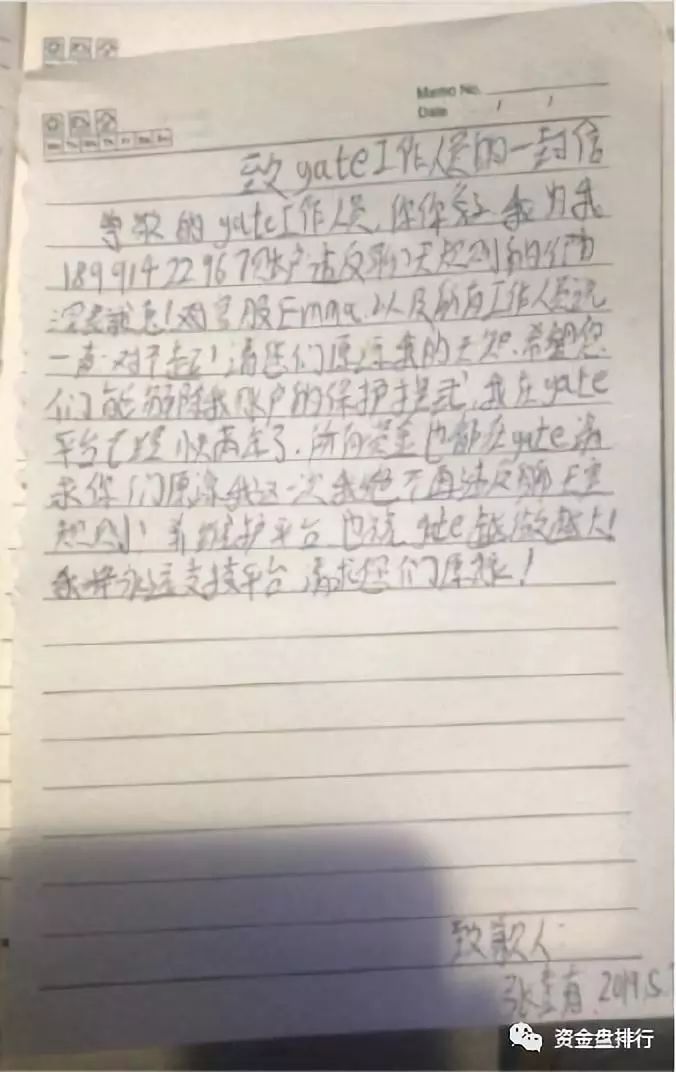 Memo No.
Date / /
Mo Tu We Th Fr Sa Su
致gate工作人员的一封信
尊敬的gate工作人员,你你好 我为我
18991422967账户违反聊天规则的行为
深表歉意!对客服Emma.以及所有工作人员说
一声:对不起!请您们原谅我的无知.希望您
们能解除我账户的保护模式,我在gate
平台已经快两年了.所有资金也都在gate请
求你们原谅我这一次我绝不再违反聊天室
规则!并维护平台 也祝gate越做越大!
我将永远支持平台 请求您们原谅!
致歉人:
张 2019.5.
资金盘排行